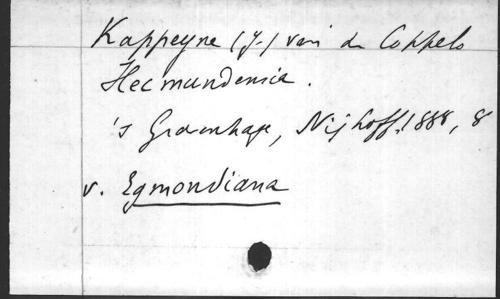 Kappeyne (J.) van de Coppelo
Hecmundensia.
's Gravenhage, Nijhoff, 1888, 8
v. Egmondiana